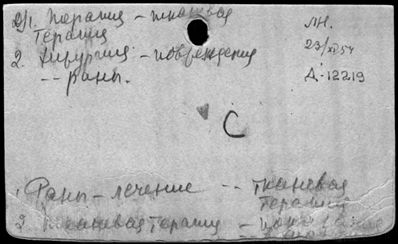 2/1. Терапия - тканевая
терапия
2. Хирургия - повреждения
-- раны.
лн.
23/XI 54
Д-12219
С
1 Раны - лечение -- тканевая
терапия
2 Тканевая терапия -